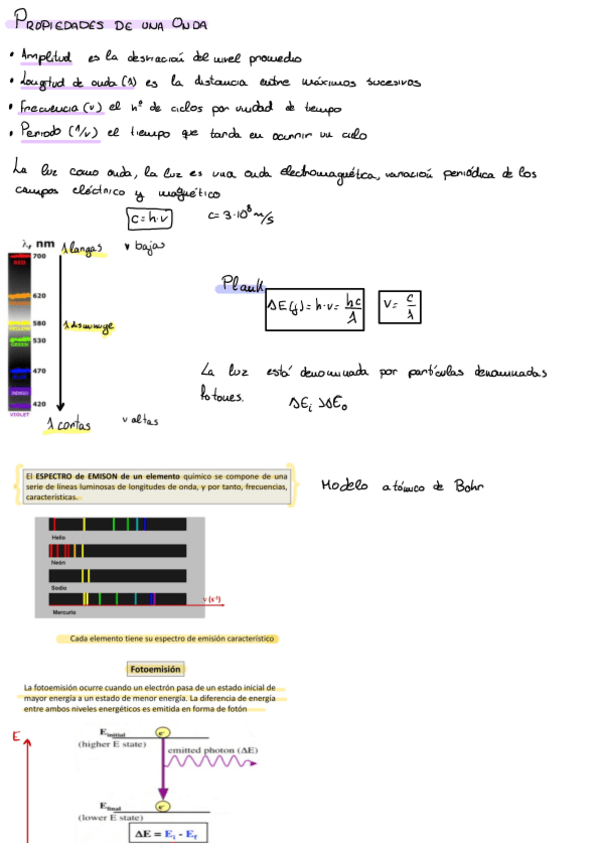 PROPIEDADES DE UNA ONDA
• Amplitud es la desviación del nivel promedio
• Longitud de onda (λ) es la distancia entre máximos sucesivos
• Frecuencia (ν) el nº de ciclos por unidad de tiempo
• Periodo (1/ν) el tiempo que tarda en ocurrir un ciclo
La luz como onda, la luz es una onda electromagnética, variación periódica de los
campos eléctrico y magnético
C=h·ν
C= 3·10⁸ m/s
λ, nm
λ largas
ν bajas
700
RED
620
580
YELLOW
λ disminuye
530
GREEN
470
BLUE
INDIGO
420
VIOLET
λ cortas
ν altas
Plank
ΔE(J)= h·ν= hc/λ
ν= c/λ
La luz está denominada por partículas denominadas
fotones.
ΔEᵢ >ΔE₀
El ESPECTRO de EMISON de un elemento químico se compone de una
serie de líneas luminosas de longitudes de onda, y por tanto, frecuencias,
características.
Modelo atómico de Bohr
Helio
Neón
Sodio
ν (s⁻¹)
Mercurio
Cada elemento tiene su espectro de emisión característico
Fotoemisión
La fotoemisión ocurre cuando un electrón pasa de un estado inicial de
mayor energía a un estado de menor energía. La diferencia de energía
entre ambos niveles energéticos es emitida en forma de fotón
E
E initial
e⁻
(higher E state)
emitted photon (ΔE)
E final
e⁻
(lower E state)
ΔE = Eᵢ - E_f